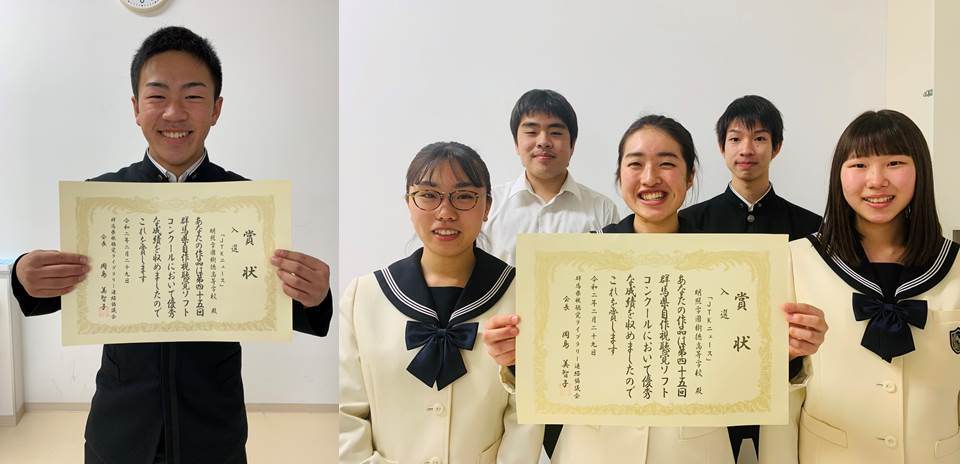 賞状
入選
「JTKニュース」
明照学園樹徳高等学校 殿
あなたの作品は第四十五回
群馬県自作視聴覚ソフト
コンクールにおいて優秀
な成績を収めましたので
これを賞します
令和二年二月二十九日
群馬県視聴覚ライブラリー連絡協議会
会長 岡島 美智子
賞状
入選
「JTKニュース」
明照学園樹徳高等学校 殿
あなたの作品は第四十五回
群馬県自作視聴覚ソフト
コンクールにおいて優秀
な成績を収めましたので
これを賞します
令和二年二月二十九日
群馬県視聴覚ライブラリー連絡協議会
会長 岡島 美智子